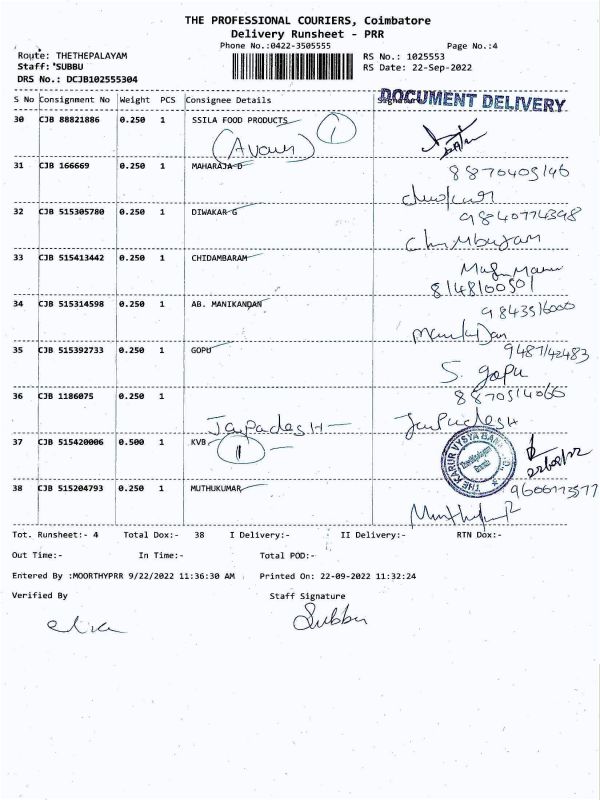 THE PROFESSIONAL COURIERS, Coimbatore
Delivery Runsheet - PRR
Phone No.:0422-3505555 Page No.:4
Route: THETHEPALAYAM RS No.: 1025553
Staff: SUBBU RS Date: 22-Sep-2022
DRS No.: DCJB102555304
S No Consignment No Weight PCS Consignee Details Signature DOCUMENT DELIVERY
30 CJB 88821886 0.250 1 SSILA FOOD PRODUCTS 1
31 CJB 166669 0.250 1 MAHARAJA D
8870405146
32 CJB 515305780 0.250 1 DIWAKAR G
9840774398
33 CJB 515413442 0.250 1 CHIDAMBARAM
8148100501
34 CJB 515314598 0.250 1 AB. MANIKANDAN
9843516000
35 CJB 515392733 0.250 1 GOPU
9487142483
S. Gopu
36 CJB 1186075 0.250 1
8870514066
37 CJB 515420006 0.500 1 KVB 1
THE KARUR VYSYA BANK
Thethipalayam
Branch
22/09/22
38 CJB 515204793 0.250 1 MUTHUKUMAR
9606173577
Tot. Runsheet:- 4 Total Dox:- 38 I Delivery:- II Delivery:- RTN Dox:-
Out Time:- In Time:- Total POD:-
Entered By :MOORTHYPRR 9/22/2022 11:36:30 AM Printed On: 22-09-2022 11:32:24
Verified By Staff Signature
Subbu